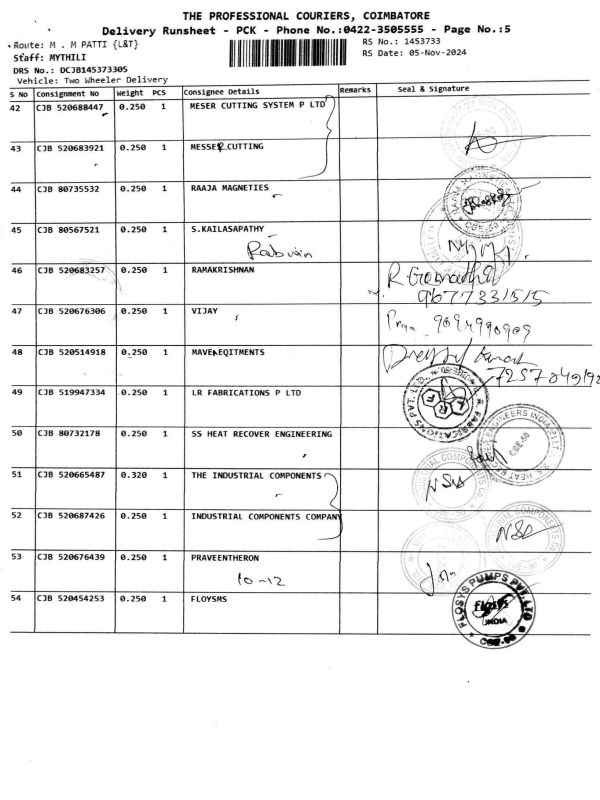 THE PROFESSIONAL COURIERS, COIMBATORE
Delivery Runsheet - PCK - Phone No.:0422-3505555 - Page No.:5
Route: M . M PATTI {L&T} RS No.: 1453733
Staff: MYTHILI RS Date: 05-Nov-2024
DRS No.: DCJB145373305
Vehicle: Two Wheeler Delivery
S No Consignment No Weight PCS Consignee Details Remarks Seal & Signature
42 CJB 520688447 0.250 1 MESER CUTTING SYSTEM P LTD
43 CJB 520683921 0.250 1 MESSER CUTTING
44 CJB 80735532 0.250 1 RAAJA MAGNETIES
45 CJB 80567521 0.250 1 S.KAILASAPATHY
46 CJB 520683257 0.250 1 RAMAKRISHNAN
9677331515
47 CJB 520676306 0.250 1 VIJAY
48 CJB 520514918 0.250 1 MAVEN EQITMENTS
49 CJB 519947334 0.250 1 LR FABRICATIONS P LTD
50 CJB 80732178 0.250 1 SS HEAT RECOVER ENGINEERING
51 CJB 520665487 0.320 1 THE INDUSTRIAL COMPONENTS
52 CJB 520687426 0.250 1 INDUSTRIAL COMPONENTS COMPANY
53 CJB 520676439 0.250 1 PRAVEENTHERON
10-12
54 CJB 520454253 0.250 1 FLOYSMS
FLOSYS PUMPS PVT. LTD
INDIA